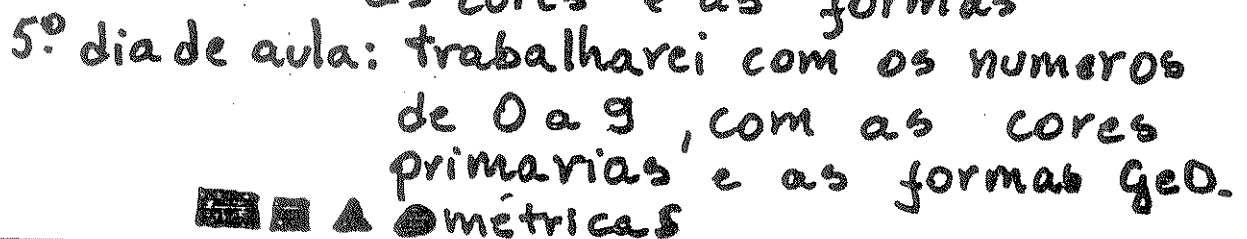 as cores e as formas
5º dia de aula: trabalharei com os numeros
de 0 a 9, com as cores
primarias e as formas Geo-
métricas